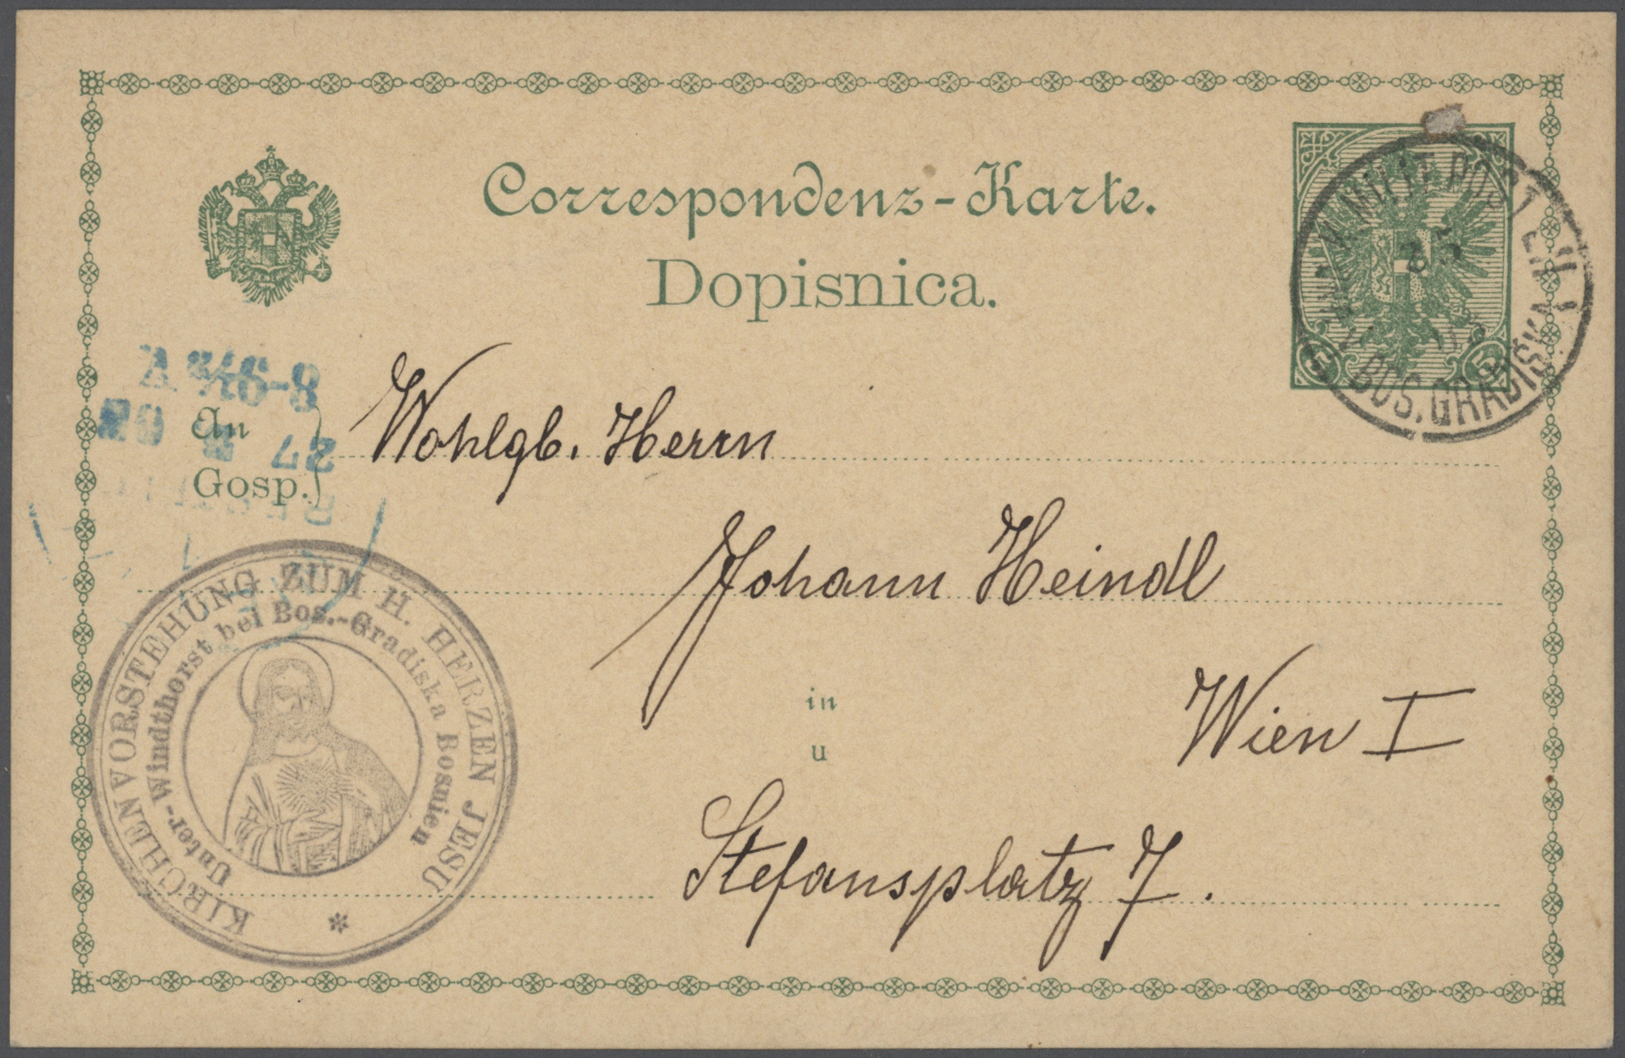 Correspondenz-Karte.
Dopisnica.
MILIT. POST
BOS. GRADIŠKA
5 5
An
Gosp.
Wohlgb. Herrn
Johann Heindl
in
u
Wien I
Stefansplatz 7.
KIRCHENVORSTEHUNG ZUM H. HERZEN JESU
Unter-Windthorst bei Bos.-Gradiska Bosnien